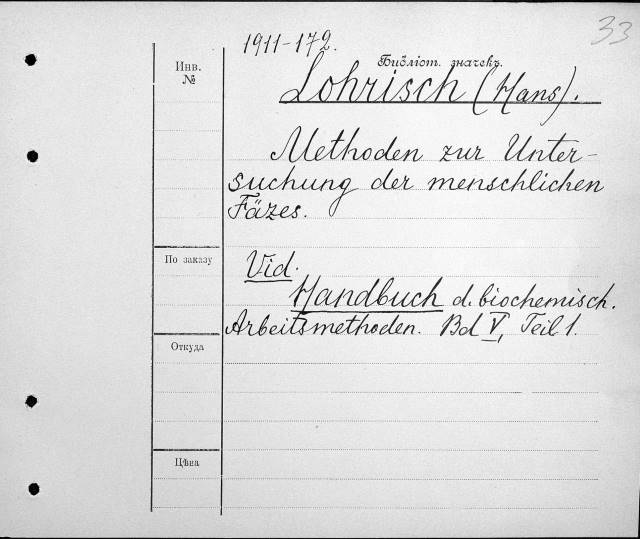 33
1911-172.
Инв.
№
Библіот. значекъ.
Lohrisch (Hans).
Methoden zur Unter-
suchung der menschlichen
Fäzes.
По заказу
Vid.
Handbuch d. biochemisch.
Arbeitsmethoden. Bd V, Teil 1.
Откуда
Цѣна